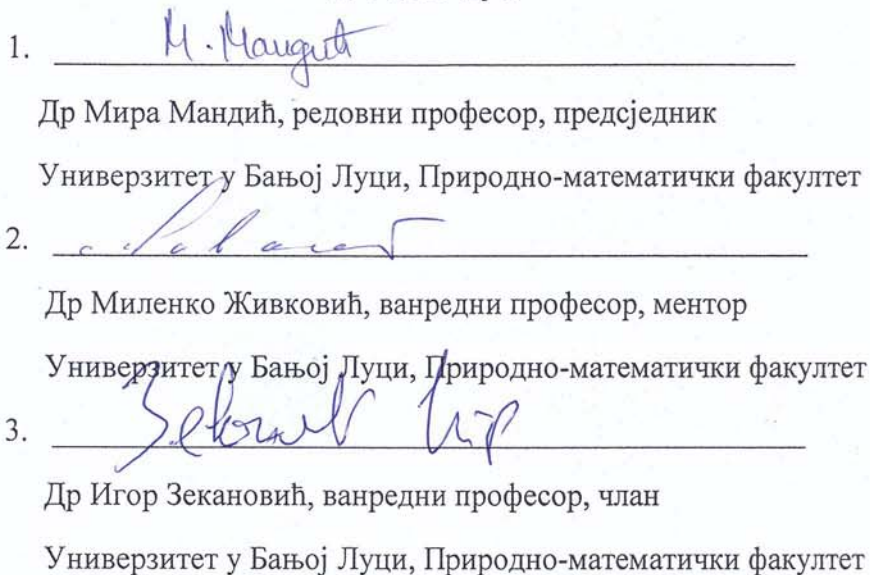 1. М. Мандић
Др Мира Мандић, редовни професор, предсједник
Универзитет у Бањој Луци, Природно-математички факултет
2.
Др Миленко Живковић, ванредни професор, ментор
Универзитет у Бањој Луци, Природно-математички факултет
3.
Др Игор Зекановић, ванредни професор, члан
Универзитет у Бањој Луци, Природно-математички факултет